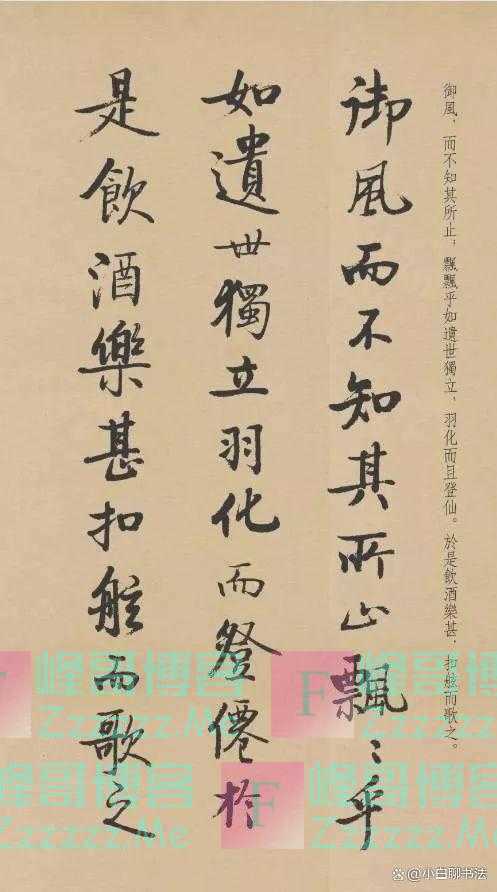 御風，而不知其所止；飄飄乎如遺世獨立，羽化而且登仙。於是飲酒樂甚，扣舷而歌之。
御風而不知其所止飄〻乎
如遺世獨立羽化而登僊於
是飲酒樂甚扣舷而歌之
峰哥博客
F
峰哥博客
Zzzzzz.Me
F
Zzzzzz.Me
峰哥博客
F
峰哥博客
Zzzzzz.Me
Zzzzzz.Me
@小白聊书法